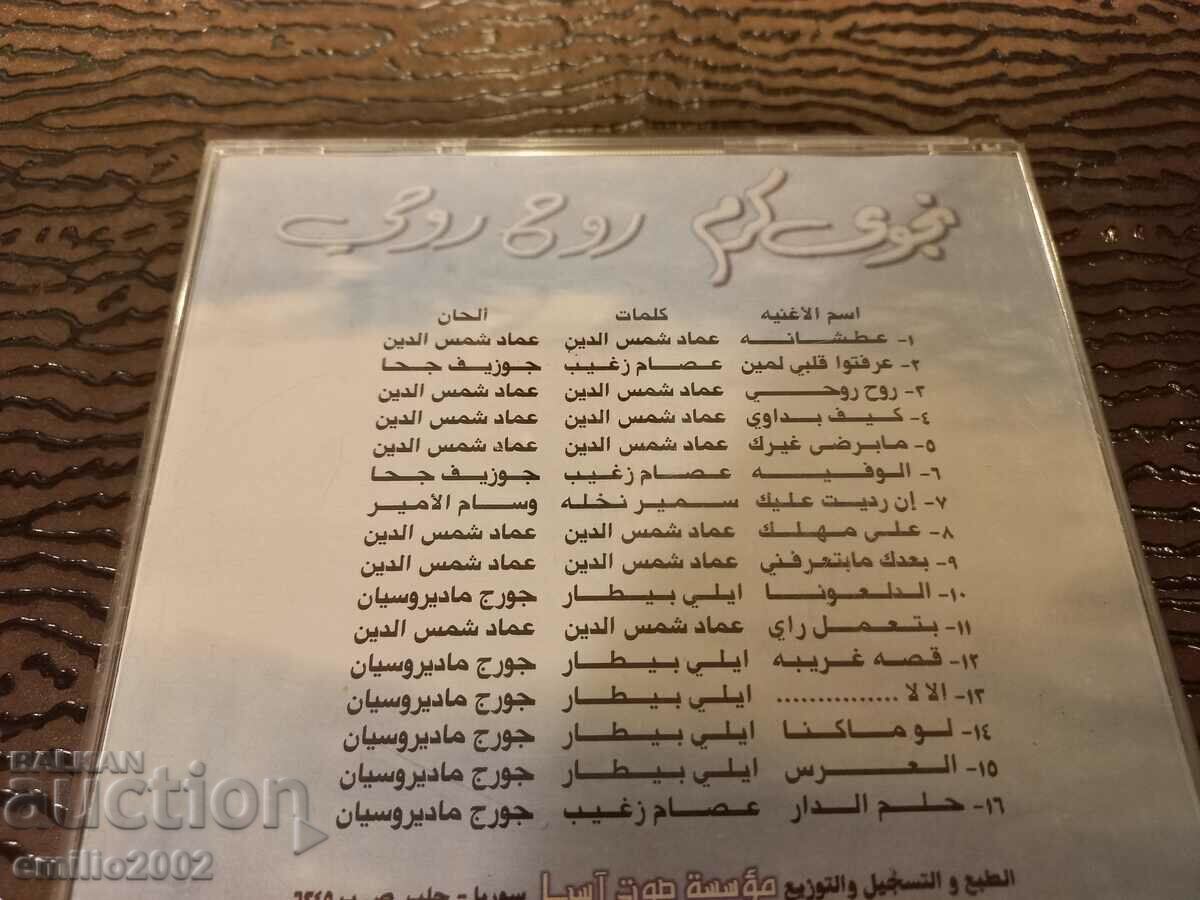 نجوى كرم روح روحي
اسم الاغنيه كلمات ألحان
١- عطشانه عماد شمس الدين عماد شمس الدين
٢- عرفتوا قلبي لمين عصام زغيب جوزيف جحا
٣- روح روحي عماد شمس الدين عماد شمس الدين
٤- كيف بداوي عماد شمس الدين عماد شمس الدين
٥- مابرضى غيرك عماد شمس الدين عماد شمس الدين
٦- الوفيه عصام زغيب جوزيف جحا
٧- إن رديت عليك سمير نخله وسام الأمير
٨- على مهلك عماد شمس الدين عماد شمس الدين
٩- بعدك مابتعرفني عماد شمس الدين عماد شمس الدين
١٠- الدلعونا ايلي بيطار جورج ماديروسيان
١١- بتعمل راي عماد شمس الدين عماد شمس الدين
١٢- قصه غريبه ايلي بيطار جورج ماديروسيان
١٣- الا لا ............... ايلي بيطار جورج ماديروسيان
١٤- لو ماكنا ايلي بيطار جورج ماديروسيان
١٥- العرس ايلي بيطار جورج ماديروسيان
١٦- حلم الدار عصام زغيب جورج ماديروسيان
الطبع و التسجيل والتوزيع مؤسسة صوت آسيا سوريا - حلب
BALKAN
auction
emilio2002